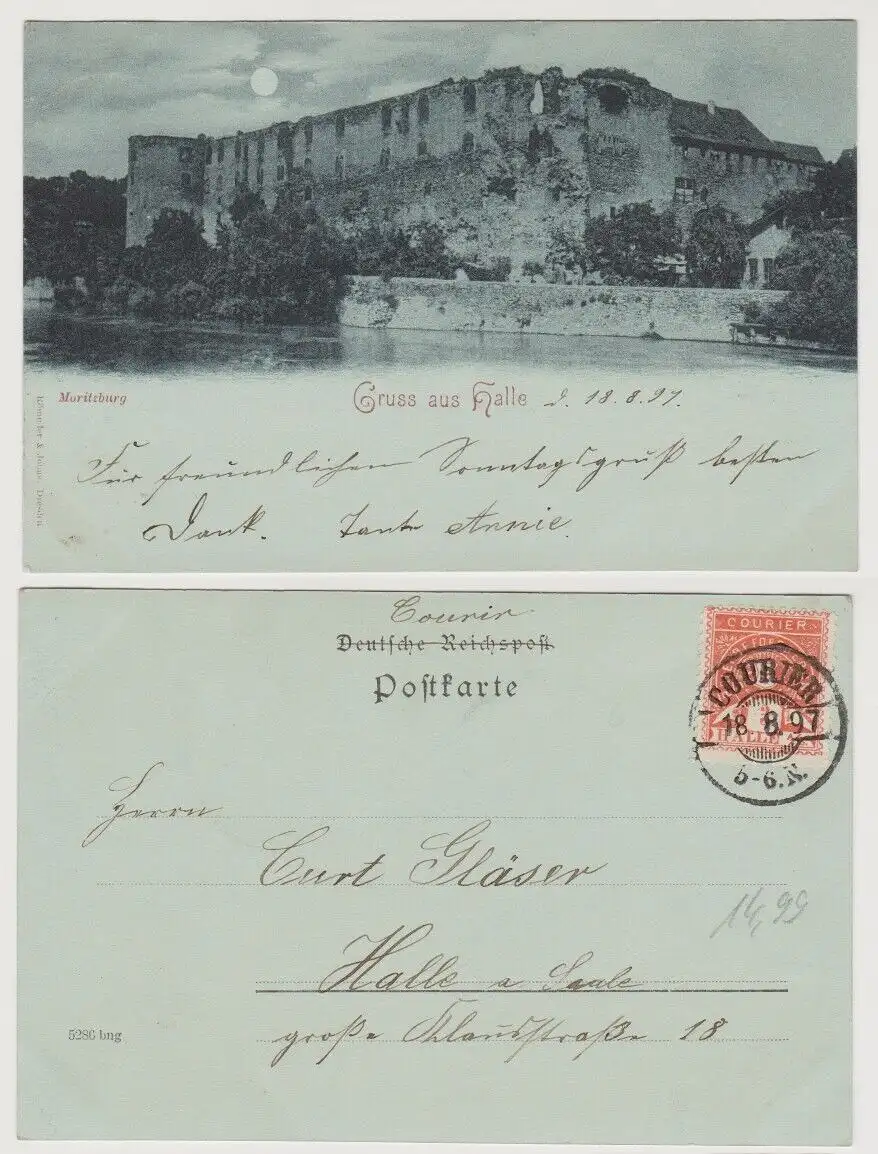 Moritzburg
Gruss aus Halle d. 18.8.97.
Für freundlichen Sonntagsgruß besten
Dank. Tante Annie.
Dresden
Courir
Deutsche Reichspost
Postkarte
COURIER
HALLE
COURIER
18. 8. 97
5-6.N.
Herrn
Curt Gläser
14,99
Halle a Saale
große Klausstraße 18
5286 bng